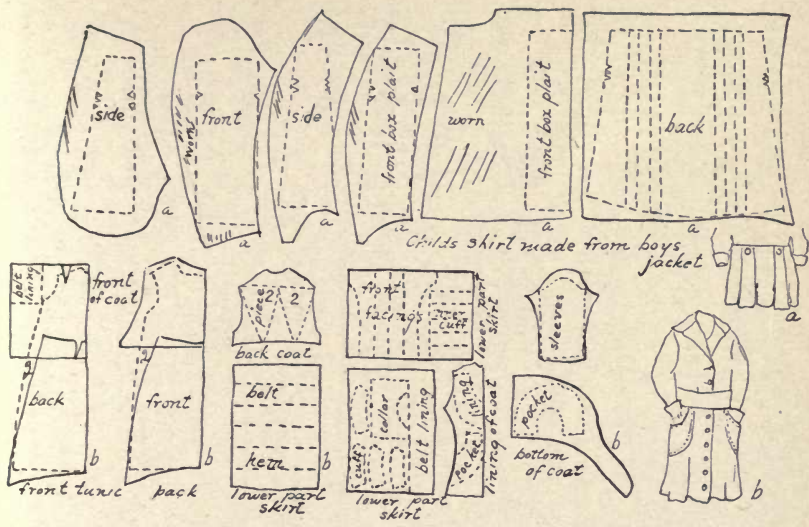 side
a
worn
front
a
side
a
front box plait
a
worn
front box plait
a
back
a
Childs skirt made from boys
jacket
a
belt
lining
front
of coat
2
back
b
front tunic
2
front
b
back
piece
2
2
back coat
belt
hem
b
lower part
skirt
front
facings
inner
cuff
lower part
skirt
collar
cuff
belt lining
lower part
skirt
pocket lining
lining of coat
sleeves
pocket
b
bottom
of coat
b